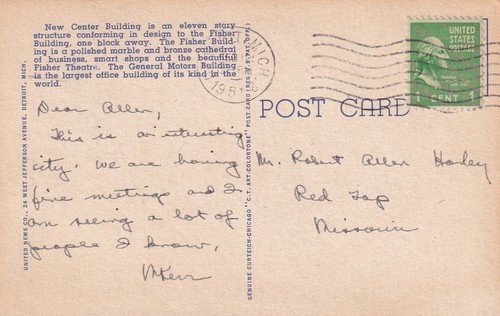 New Center Building is an eleven story
structure conforming in design to the Fisher
Building, one block away. The Fisher Build-
ing is a polished marble and bronze cathedral
of business, smart shops and the beautiful
Fisher Theatre. The General Motors Building
is the largest office building of its kind in the
world.
UNITED NEWS CO., 24 WEST JEFFERSON AVENUE, DETROIT, MICH.
Dear Allen,
This is an interesting
city. We are having
fine meetings and I
am seeing a lot of
people I know.
GENUINE CURTEICH-CHICAGO "C.T. ART-COLORTONE" POST CARD (REG. U.S. PAT. OFF.)
MICH
1951
POST CARD
UNITED STATES
POSTAGE
1 CENT 1
Mr. Robert Allen
Red Top
Missouri